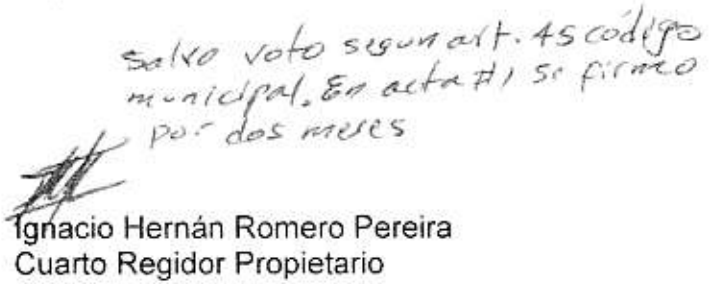 Salvo voto segun art. 45 código
municipal. En acta #1 se firmo
por dos meses
Ignacio Hernán Romero Pereira
Cuarto Regidor Propietario